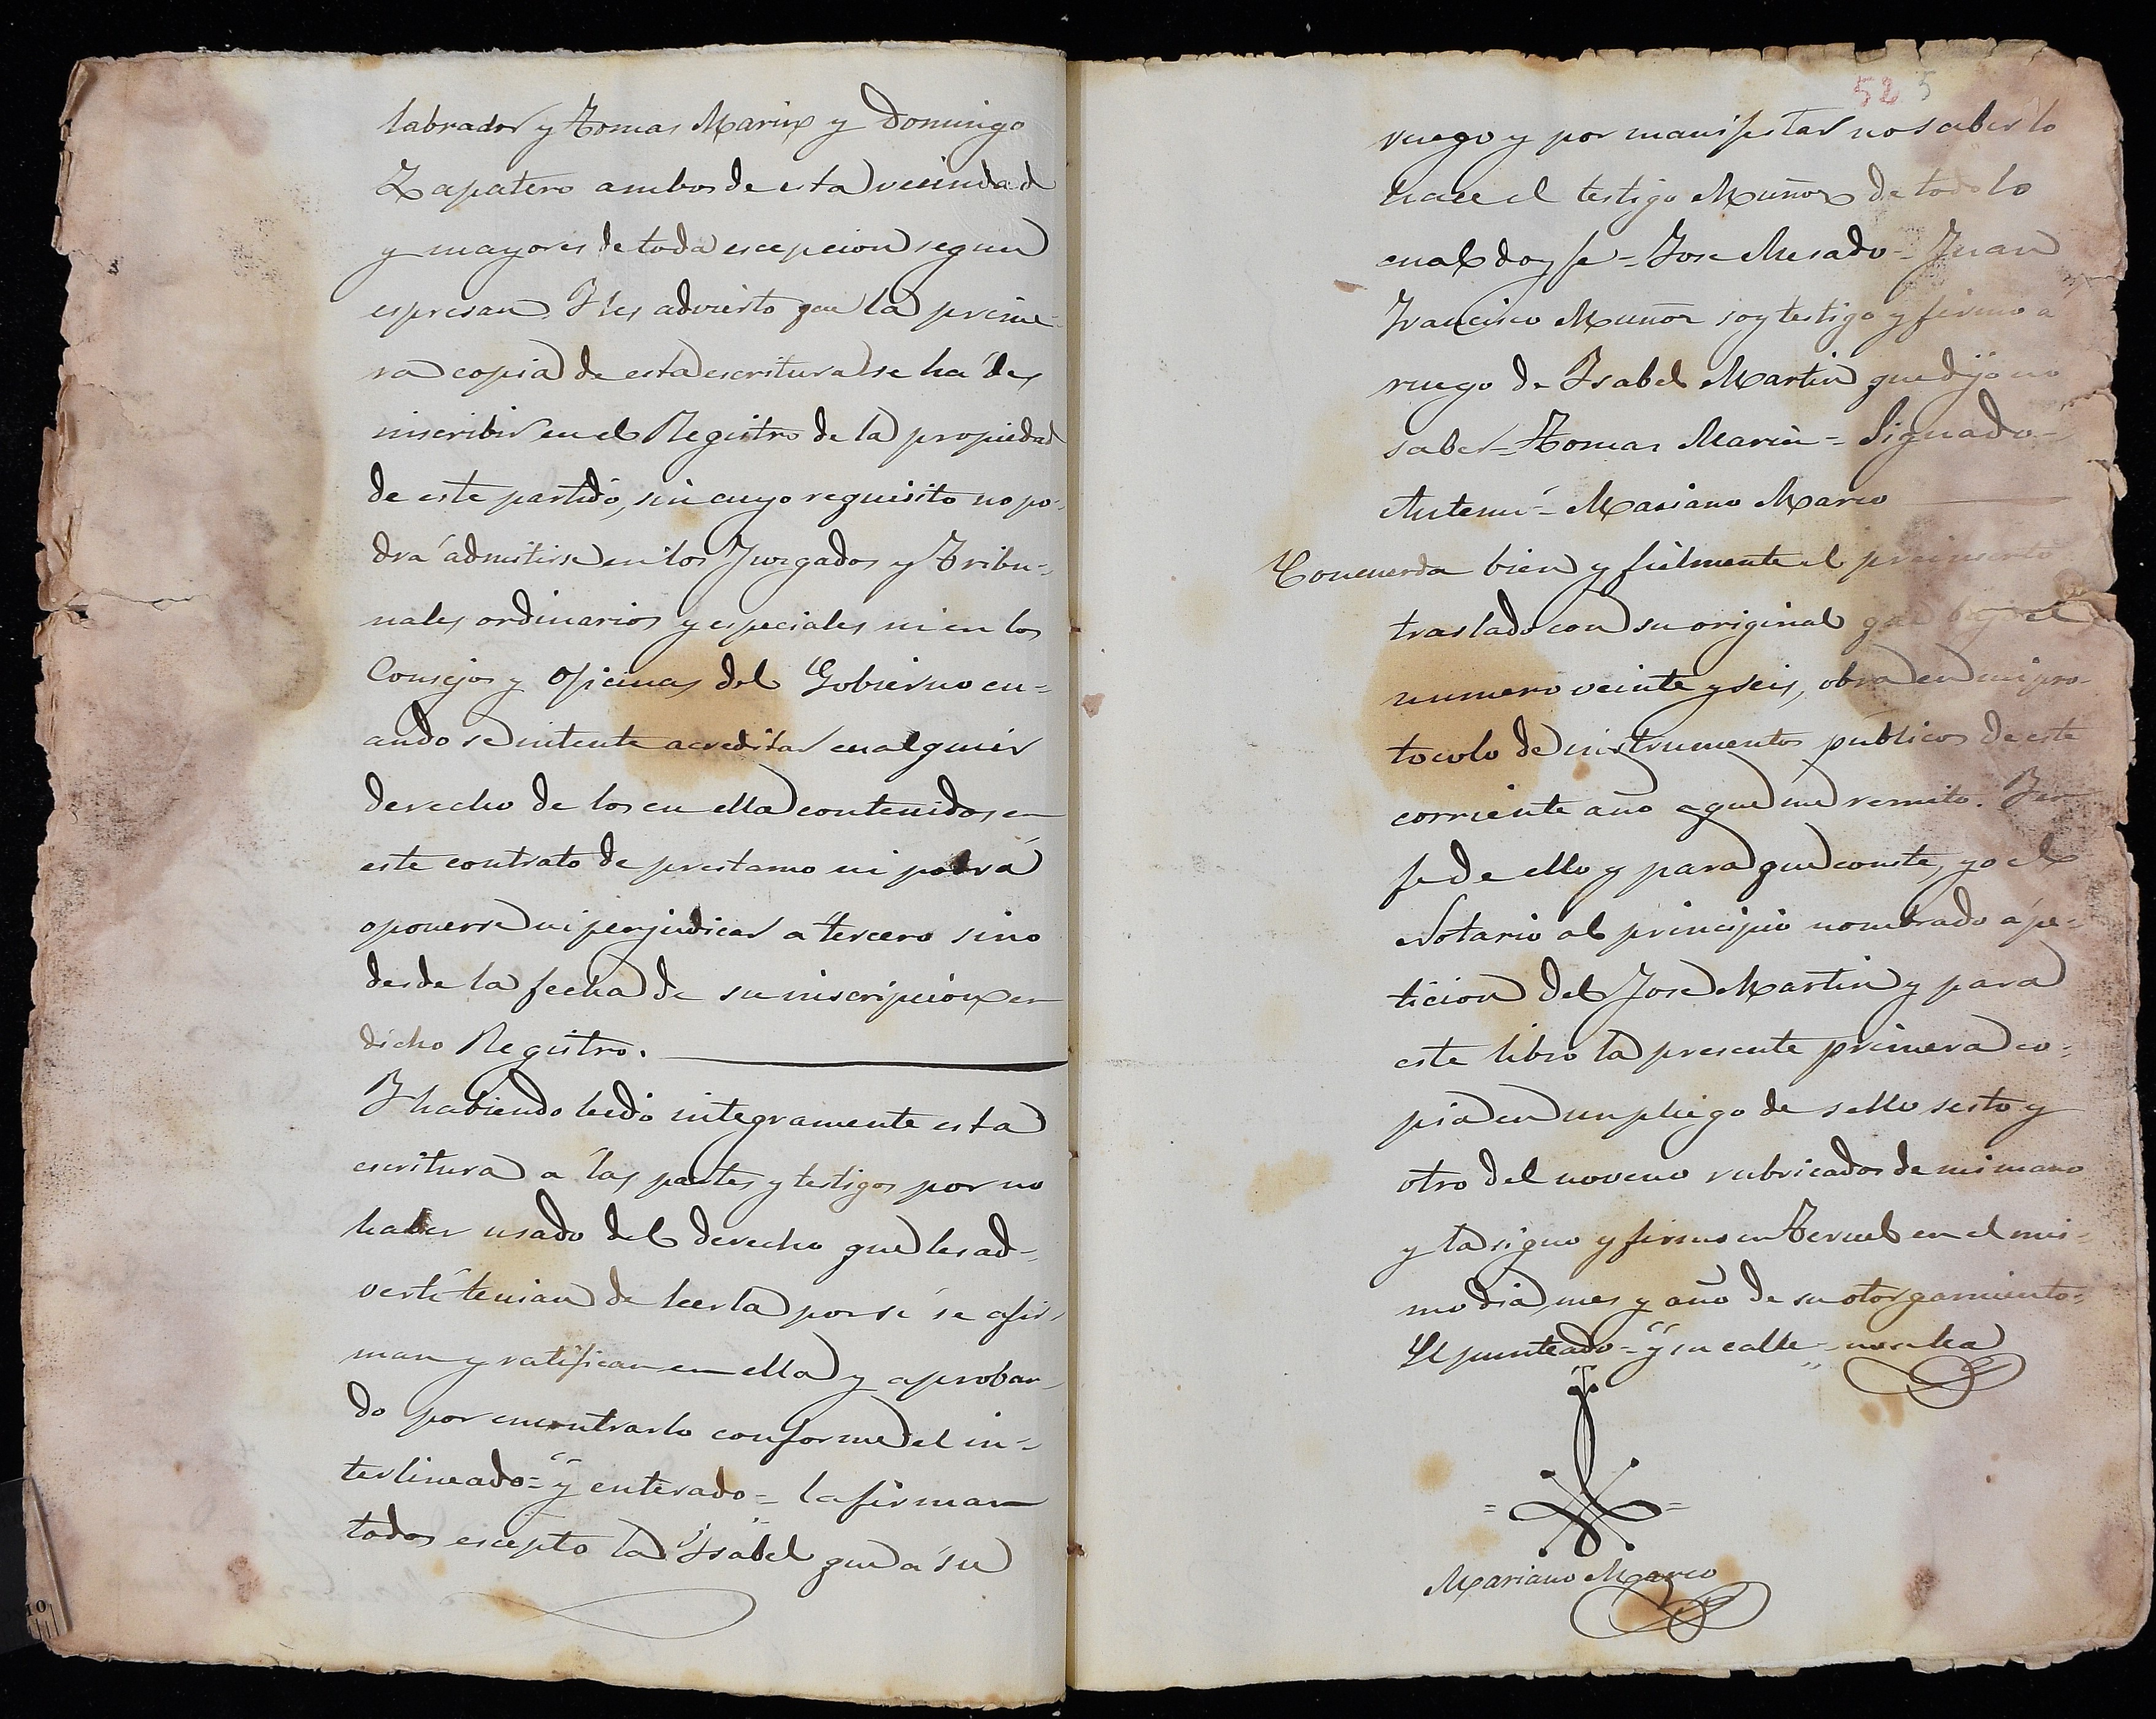 labrador y Tomas Marin y Domingo
Zapatero ambos de esta vecindad
y mayores de toda escepcion segun
espresan. Y les advierto que la prime-
ra copia de esta escritura se ha de
inscribir en el Registro de la propiedad
de este partido, sin cuyo requisito no po-
drá admitirse en los Juzgados y Tribu-
nales ordinarios y especiales ni en los
Consejos y Oficinas del Gobierno cu-
ando se intente acreditar cualquier
derecho de los en ella contenidos en
este contrato de prestamo ni podrá
oponerse ni perjudicar a tercero sino
desde la fecha de su inscripcion en
dicho Registro.
Y habiendo leido integramente esta
escritura a las partes y testigos por no
haber usado del derecho que les ad-
vertí tenian de leerla por sí se afir-
man y ratifican en ella y aproban-
do por encontrarlo conforme el in-
terlineado = "y enterado" = la firman
todos escepto la Ysabel que a su
52 5
ruego y por manifestar no saber lo
hace el testigo Muñoz de todo lo
cual doy fe = Jose Mesado = Juan
Francisco Muñoz soy testigo y firmo a
ruego de Ysabel Martin que dijo no
saber = Tomas Marin = Signado =
Antemí = Mariano Marco
Concuerda bien y fielmente el preinserto
traslado con su original que bajo el
numero veinte y seis, obra en mi pro-
tocolo de instrumentos públicos de este
corriente año a que me remito. Y en
fe de ello y para que conste, yo el
Notario al principio nombrado á pe-
ticion del Jose Martin y para
este libro la presente primera co-
pia en un pliego de sello sesto y
otro del noveno rubricados de mi mano
y la signo y firmo en Teruel en el mis-
mo dia, mes y año de su otorgamiento =
El punteado = "y su calle" =
Mariano Marco